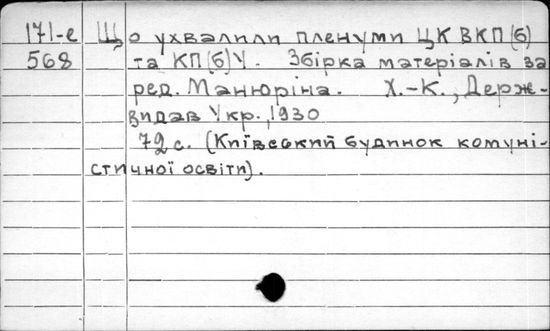 171-е Що ухвалили пленуми ЦК ВКП(б)
568 та КП(б)У. Збірка матеріалів за
ред. Манюріна. Х.-К., Держ-
видав Укр., 1930
72 с. (Київський будинок комуні-
стичної освіти).